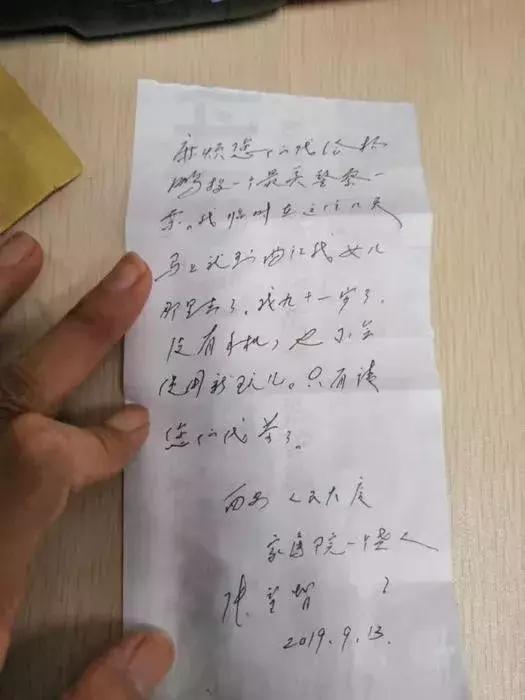 麻烦您们代给杨
鹏投一个最美警察一
票。我临时在这住几天
马上就到曲江我女儿
那里去了。我九十一岁了,
没有手机,也不会
使用新玩儿。只有请
您们代劳了。
西安人民大厦
家属院一个老人
张望智
2019.9.13.